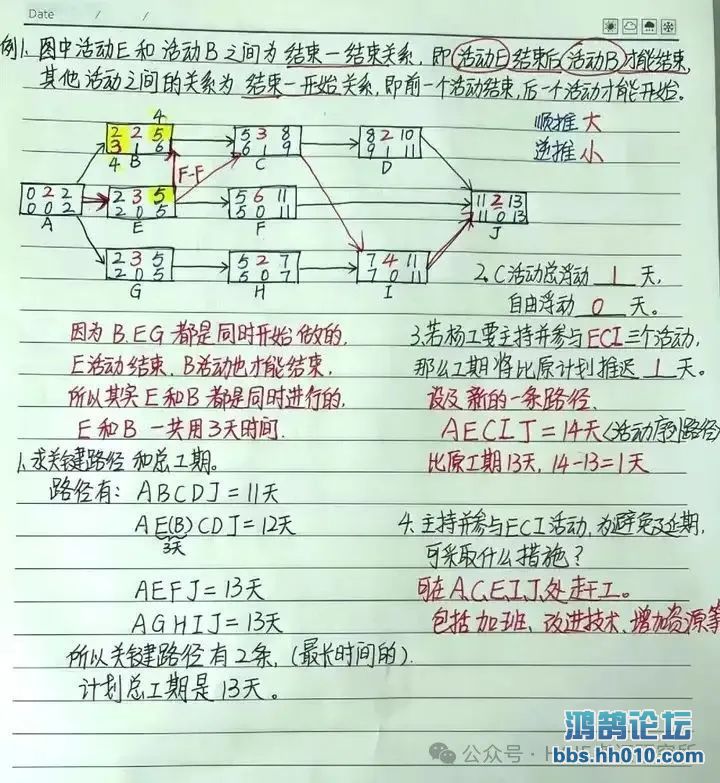 Date / /
例1. 图中活动E和活动B之间为结束一结束关系，即活动E结束后，活动B才能结束，
其他活动之间的关系为结束一开始关系，即前一个活动结束，后一个活动才能开始。
顺推大
逆推小
4
2 2 5
3 1 6
4 B
5 3 8
6 1 9
C
8 2 10
9 1 11
D
F-F
0 2 2
0 0 2
A
2 3 5
2 0 5
E
5 6 11
5 0 11
F
11 2 13
11 0 13
J
2 3 5
2 0 5
G
5 2 7
5 0 7
H
7 4 11
7 0 11
I
2. C活动总浮动 1 天，
自由浮动 0 天。
因为B.E.G都是同时开始做的，
E活动结束，B活动也才能结束，
所以其实E和B都是同时进行的，
E和B一共用3天时间.
3.若杨工要主持并参与ECI三个活动，
那么工期将比原计划推迟 1 天。
设及新的一条路径.
AECIJ=14天(活动序列路径)
比原工期13天，14-13=1天
1.求关键路径和总工期。
路径有：ABCDJ=11天
AE(B)CDJ=12天
3天
AEFJ=13天
AGHIJ=13天
所以关键路径有2条，(最长时间的).
计划总工期是13天。
4.主持并参与ECI活动，为避免延期，
可采取什么措施？
可在A,C,E,I,J处赶工。
包括加班、改进技术、增加资源等
公众号·
鸿鹄论坛
bbs.hh010.com